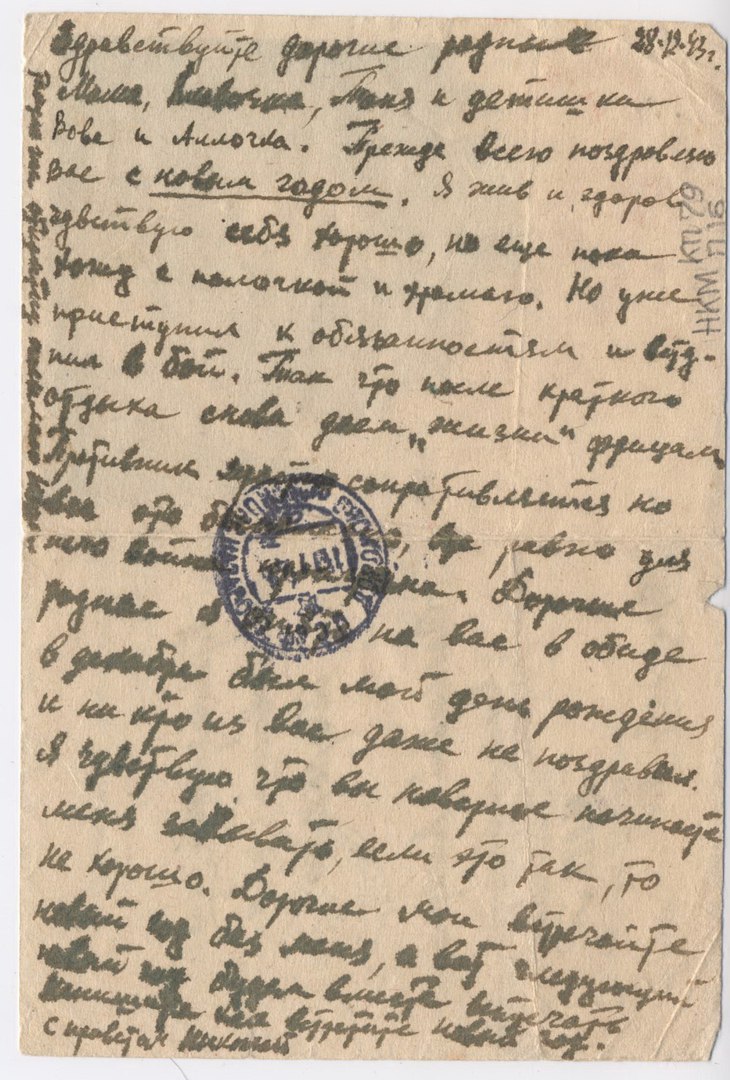 Здравствуйте дорогие родные 28.12.43г.
Мама, Тоня и детишки
Вова и Аллочка. Прежде всего поздравляю
вас с новым годом. Я жив и здоров
чувствую себя хорошо, но еще пока
хожу с палочкой и хромаю. Но уже
приступил к обязанностям и всту-
пил в бой. Так что после краткого
отдыха снова даем "жизни" фрицам
Противник сопротивляется но
все это равно для
него война Дорогие
родные я на вас в обиде
в декабре был мой день рождения
и ни кто из вас даже не поздравил.
Я чувствую что вы наверное начинаете
меня забывать, если это так, то
не хорошо. Дорогие мои встречайте
новый год без меня, а вот следующий
новый год будем вместе встречать
Напишите как встретите новый год.
с приветом Николай
НКМ КП 79
П.9